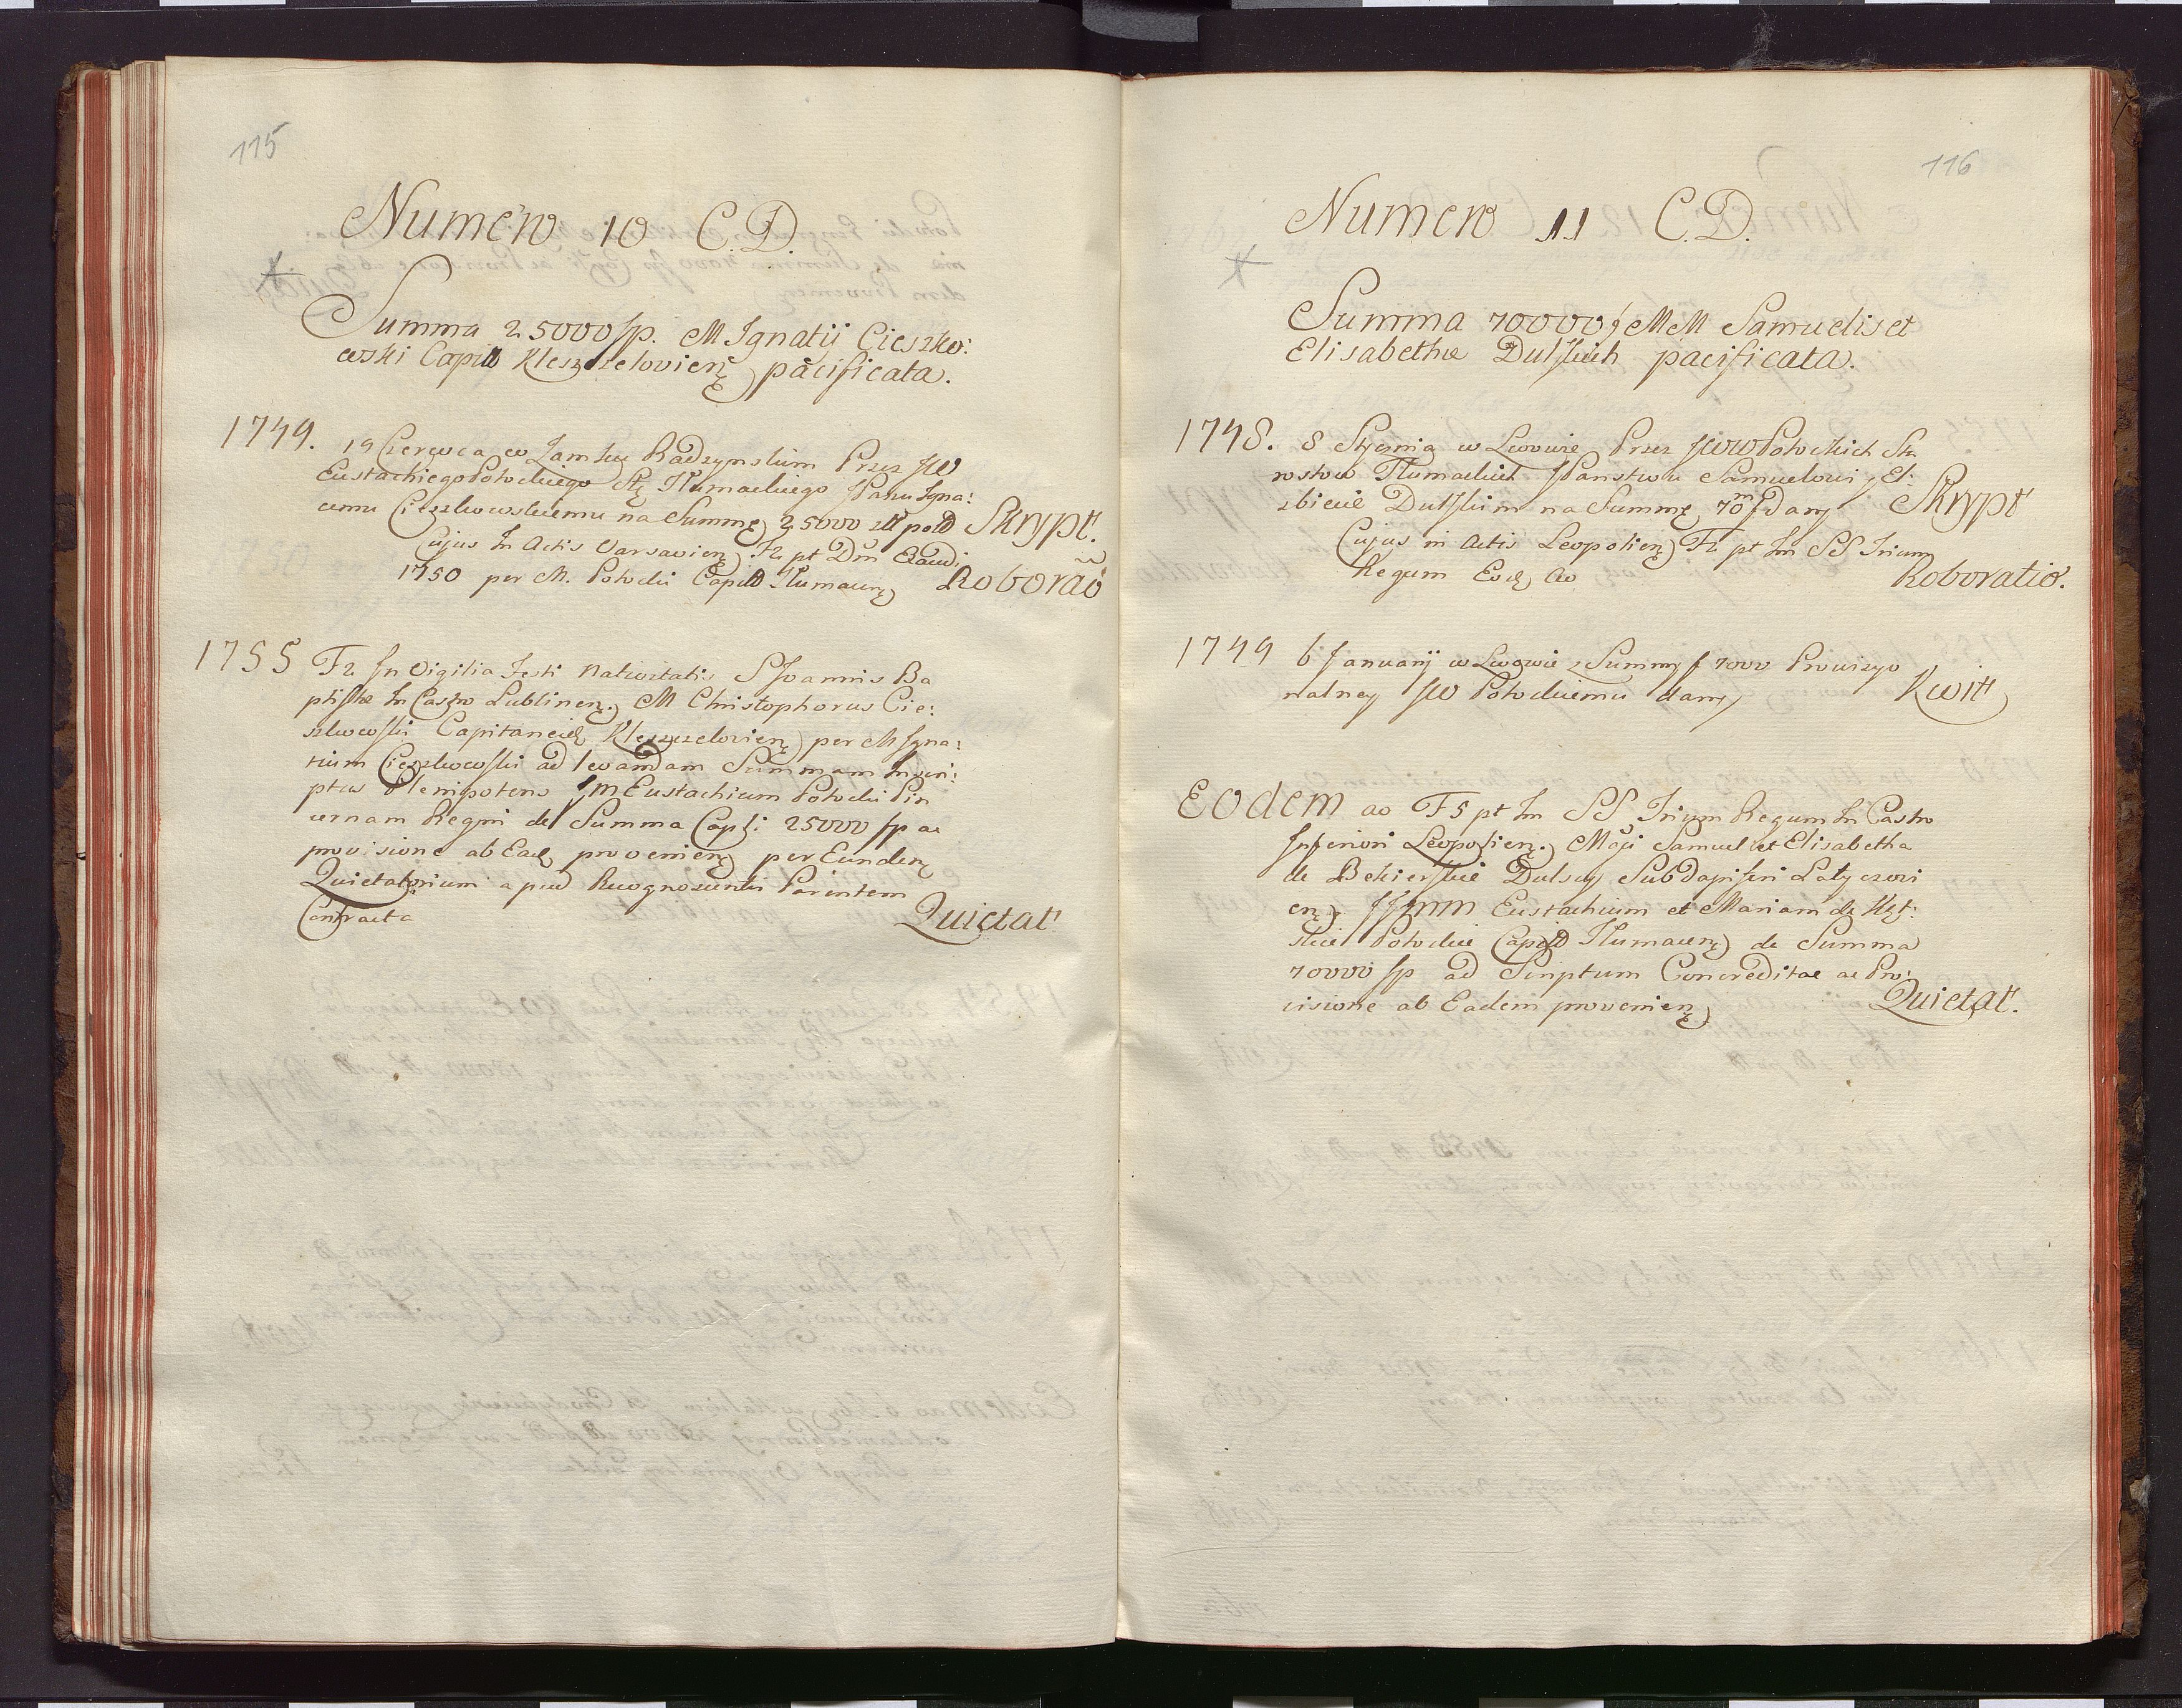 115
Numero 10 C.D.
Summa 25000 fp. M Ignatii Cieszko:
wski Capitt Kleszczelovien pacificata.
1749. 19 Czerwca w Zamku Radzynskim Przez JW
Eustachiego Potockiego Stę Tłumackiego JPanu Igna:
cemu Cieszkowskiemu na Summę 25000 złł pold Skrypt.
Cujus In Actis Varsavien Fr pt Dm Exaudi
1750 per M. Potocki Capitt Tłumacen Roborao
1755 Fr In Vigilia Festi Nativitatis S Joannis Ba
ptistae In Castro Lublinen. M Christophorus Cie:
szkowski Capitaneid Kleszczelovien per M Igna:
tium Cieszkowski ad levandam Summam Inscri:
ptus Plenipotens JM Eustachium Potocki Pin
cernam Regni de Summa Capli 25000 fp ac
provisione ab Ead provenien per Eunden
Quietatorium apud Recognoscentis Parentem
Contracta Quietat
116
Numero 11 C.D.
Summa 70000 f MM Samuelis et
Elisabethae Dulskich pacificata.
1748. 8 Stycznia w Lwowie Przez JWW Potockich Sta
rostow Tłumackich JPanstwu Samuelowi y El:
zbiecie Dulskim na Summę 70 m f dany Skrypt
Cujus in Actis Leopolien Fr pt Im SS Trium
Regum Eod Ao Roboratio.
1749 6 Januarij w Lwowie z Summy f 7000 Prowizyo
nalney JW Potockiemu dany Kwitt
Eodem ao F5 pt Im SS Trium Regum In Castro
Inferiori Leopolien. Mci Samuel et Elisabetha
de Bekierskie Dulscy SubDapiferi Latyczovi
en. JJMM Eustachium et Mariam de Kąt:
skie Potockie Capitt Tłumacen de Summa
70000 fp ad Scriptum Concreditae ac Pro:
visione ab Eadem provenien Quietat.